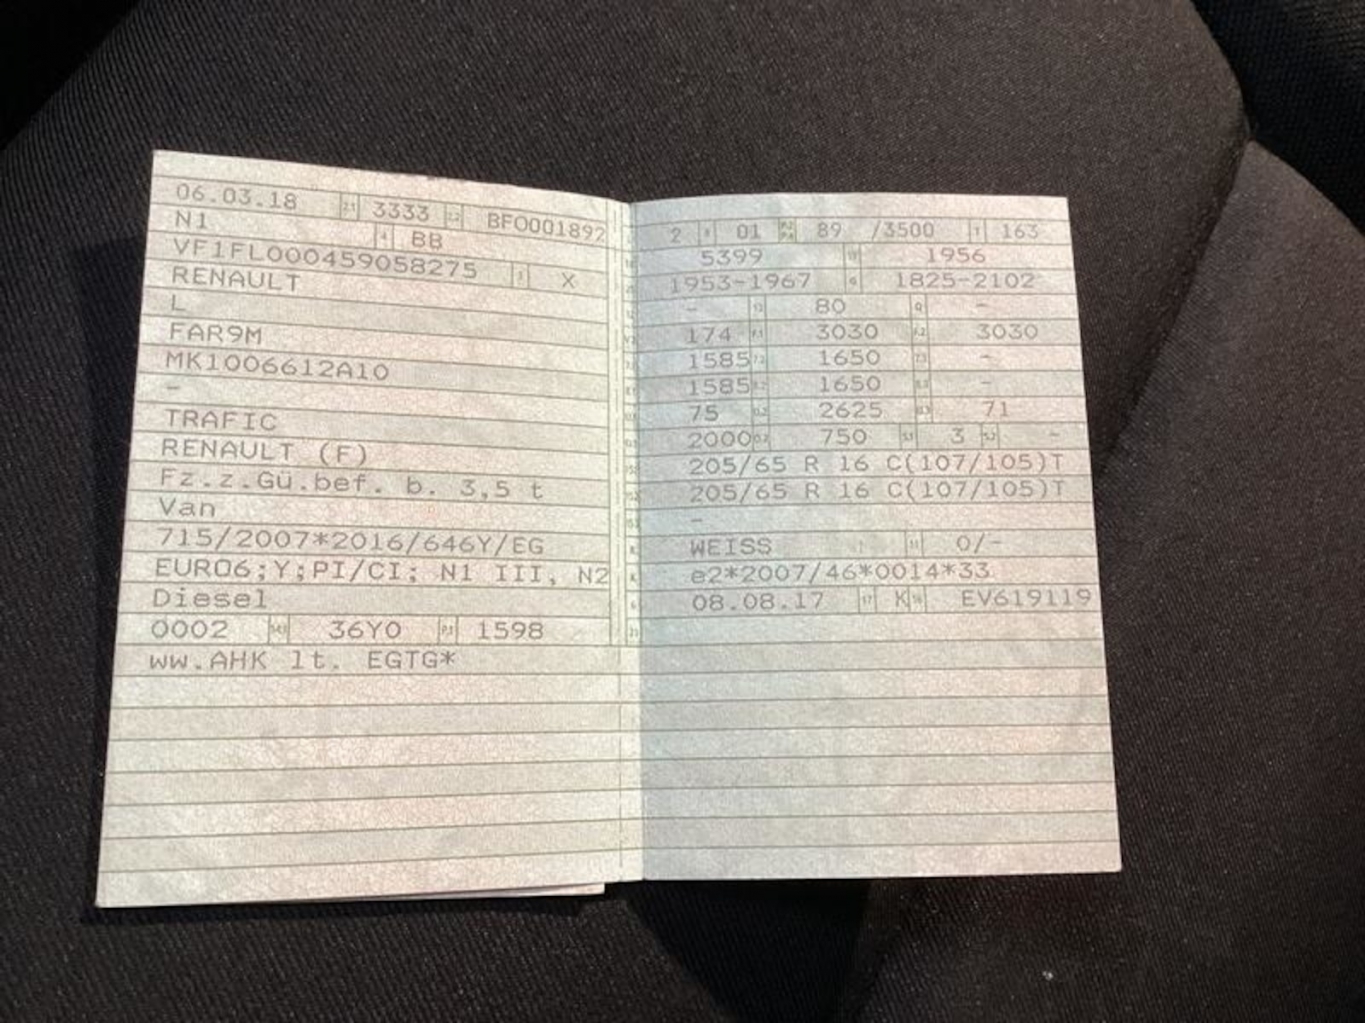 06.03.18 3333 BFO001892
N1 BB
VF1FL000459058275 X
RENAULT
L
FAR9M
MK1006612A10
-
TRAFIC
RENAULT (F)
Fz.z.Gü.bef. b. 3,5 t
Van
715/2007*2016/646Y/EG
EURO6;Y;PI/CI; N1 III, N2
Diesel
0002 36Y0 1598
ww.AHK lt. EGTG*
2 01 89 /3500 163
5399 1956
1953-1967 1825-2102
- 80 -
174 3030 3030
1585 1650 -
1585 1650 -
75 2625 71
2000 750 3 -
205/65 R 16 C(107/105)T
205/65 R 16 C(107/105)T
-
WEISS 0/-
e2*2007/46*0014*33
08.08.17 K EV619119